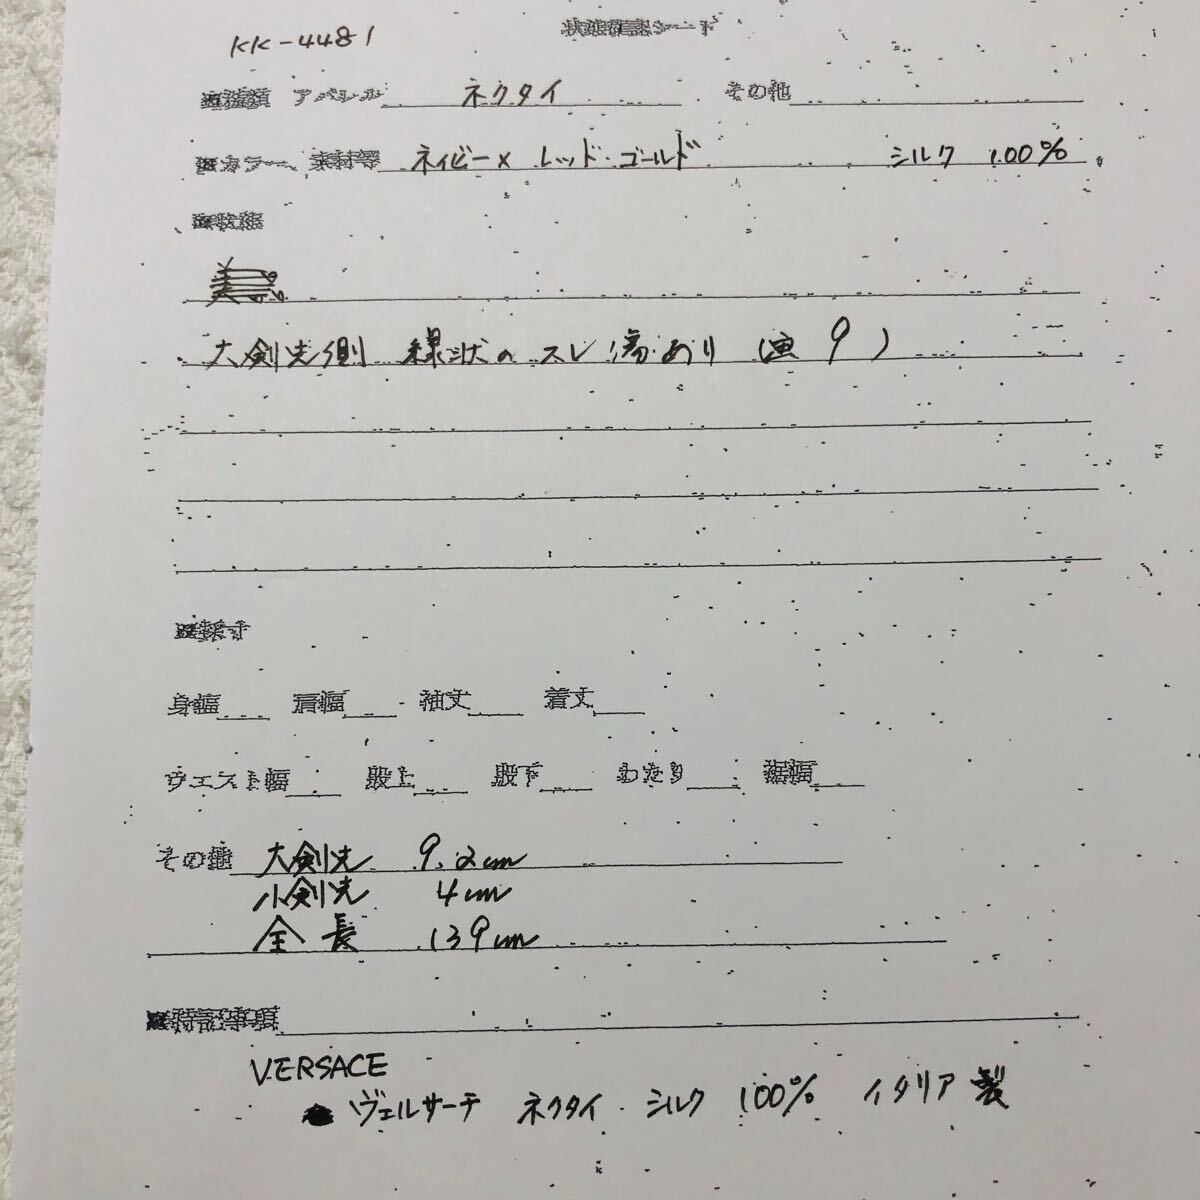 KK-4481
状態確認シート
■種類 アパレル ネクタイ その他
■カラー、素材等 ネイビー×レッド・ゴールド シルク 100%
■状態
大剣先側 線状のスレ傷あり (画 9)
■採寸
身幅 肩幅 袖丈 着丈
ウエスト幅 股上 股下 わたり 裾幅
その他 大剣先 9.2cm
小剣先 4cm
全長 139cm
■特記事項
VERSACE
ヴェルサーチ ネクタイ シルク 100% イタリア製